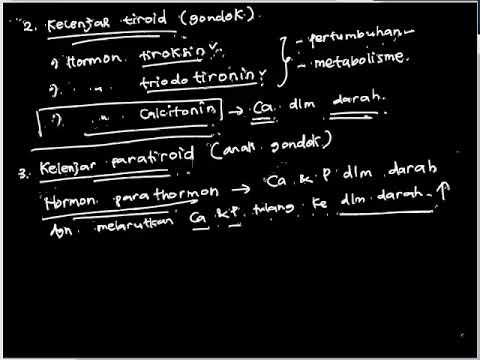 2. Kelenjar tiroid (gondok).
•) Hormon tiroksin - pertumbuhan
•) " triodotironin - metabolisme.
•) " Calcitonin → Ca dlm darah.
3. Kelenjar paratiroid (anak gondok)
Hormon parathormon → Ca & P dlm darah
dgn melarutkan Ca & P tulang ke dlm darah ↑